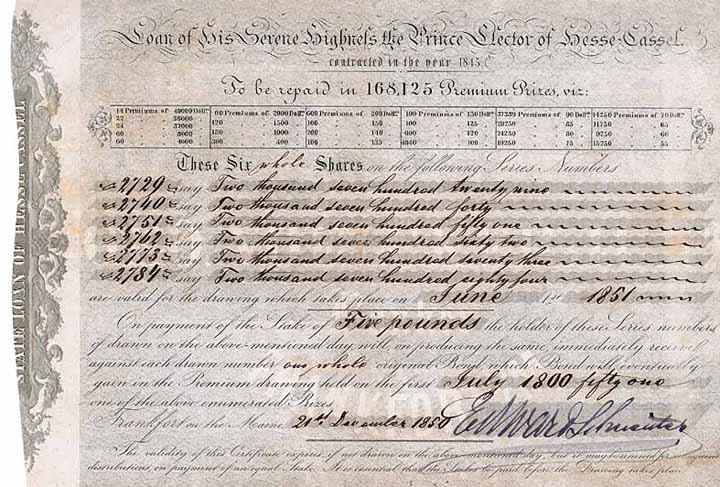 STATE LOAN OF HESSE CASSEL
Loan of His Serene Highness the Prince Elector of Hesse-Cassel.
contracted in the year 1845
To be repaid in 168,125 Premium Prizes, viz:
14 Premiums of 40000 Doll. 60 Premiums of 2000 Doll. 600 Premiums of 200 Doll. 100 Premiums of 130 Doll. Premiums of 90 Doll. 14250 Premiums of 70 Doll.
22 36000 120 1500 100 150 100 125 85 11750 65
24 32000 180 1000 200 140 100 120 80 60
60 8000 300 400 600 135 100 55
60 4000
These Six whole Shares on the following Series Numbers
2729 say Two thousand seven hundred twenty nine
2740 say Two thousand seven hundred forty
2751 say Two thousand seven hundred fifty one
2762 say Two thousand seven hundred sixty two
2773 say Two thousand seven hundred seventy three
2784 say Two thousand seven hundred eighty four
are valid for the drawing which takes place on June 1st 1851
On payment of the Stake of Five pounds the holder of these Series numbers
if drawn on the above-mentioned day will, on producing the same, immediately receive
against each drawn number one whole original Bond, which Bond will eventually
gain in the Premium drawing held on the first July 1800 fifty one
one of the above enumerated Prizes.
Frankfort on the Maine, 21st December 1850 Edward
The validity of this Certificate expires, if not drawn on the above-mentioned day, but it may be renewed for subsequent
distributions, on payment of an equal Stake. It is essential that the Stakes be paid before the Drawing takes place.